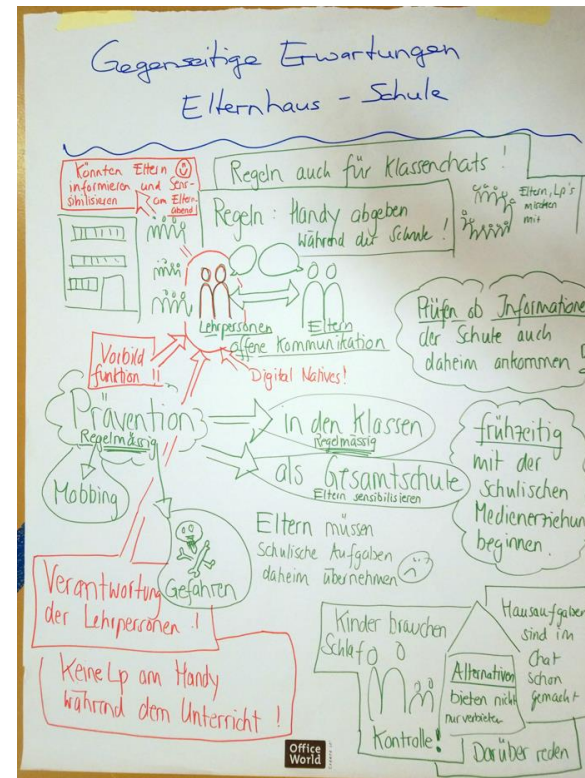 Gegenseitige Erwartungen
Elternhaus - Schule
Könnten Eltern
informieren und Sen-
sibilisieren am Eltern-
abend
Regeln auch für Klassenchats !
Regeln : Handy abgeben
während der Schule !
Eltern, Lp's
mischen
mit
Lehrpersonen
Eltern
offene Kommunikation
Prüfen ob Informatione
der Schule auch
daheim ankommen
Vorbild
funktion !!
Digital Natives!
Prävention
Regelmässig
in den Klassen
Regelmässig
als Gesamtschule
Eltern sensibilisieren
frühzeitig
mit der
schulischen
Medienerziehun
beginnen.
Mobbing
Gefahren
Eltern müssen
schulische Aufgaben
daheim übernehmen
Verantwortung
der Lehrpersonen !
Keine Lp am Handy
während dem Unterricht !
Kinder brauchen
Schlaf
Kontrolle!
Alternativen
bieten nicht
nur verbieten
Hausaufgaben
sind im
Chat
schon
gemacht
Darüber reden
Office
World